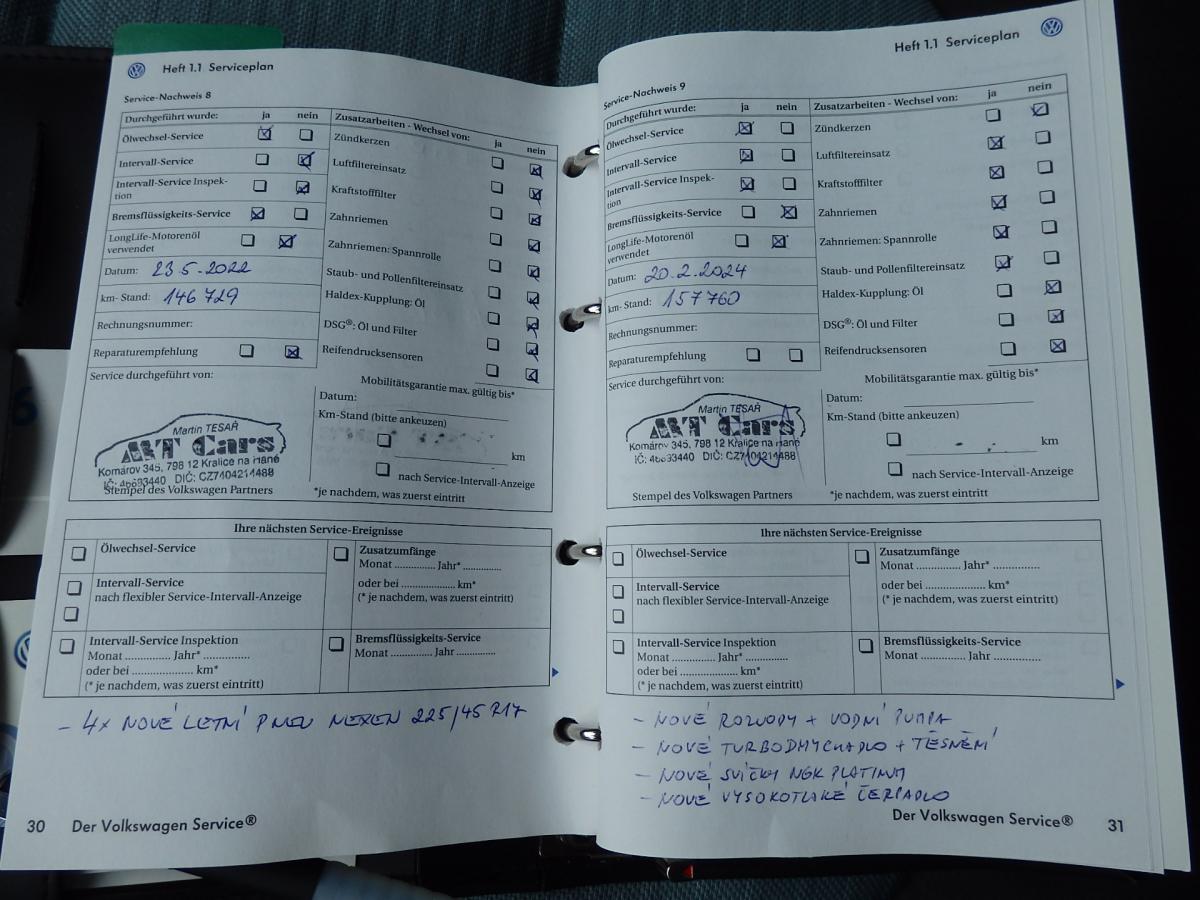 Heft 1.1 Serviceplan
Service-Nachweis 8
Durchgeführt wurde: ja nein
Ölwechsel-Service
Intervall-Service
Intervall-Service Inspek-
tion
Bremsflüssigkeits-Service
LongLife-Motorenöl
verwendet
Datum: 23.5.2022
km- Stand: 146 729
Rechnungsnummer:
Reparaturempfehlung
Zusatzarbeiten - Wechsel von: ja nein
Zündkerzen
Luftfiltereinsatz
Kraftstofffilter
Zahnriemen
Zahnriemen: Spannrolle
Staub- und Pollenfiltereinsatz
Haldex-Kupplung: Öl
DSG®: Öl und Filter
Reifendrucksensoren
Service durchgeführt von:
Martin TESAŘ
MT Cars
Komárov 345, 798 12 Kralice na Hané
IČ: 46693440 DIČ: CZ7404214488
Stempel des Volkswagen Partners
Mobilitätsgarantie max. gültig bis*
Datum:
Km-Stand (bitte ankeuzen)
km
nach Service-Intervall-Anzeige
*je nachdem, was zuerst eintritt
Ihre nächsten Service-Ereignisse
Ölwechsel-Service
Intervall-Service
nach flexibler Service-Intervall-Anzeige
Intervall-Service Inspektion
Monat ............... Jahr* ...............
oder bei .................... km*
(* je nachdem, was zuerst eintritt)
Zusatzumfänge
Monat ............. Jahr* .............
oder bei .................. km*
(* je nachdem, was zuerst eintritt)
Bremsflüssigkeits-Service
Monat ............... Jahr .............
- 4x NOVÉ LETNÍ PNEU NEXEN 225/45 R17
30 Der Volkswagen Service®
Heft 1.1 Serviceplan
Service-Nachweis 9
Durchgeführt wurde: ja nein
Ölwechsel-Service
Intervall-Service
Intervall-Service Inspek-
tion
Bremsflüssigkeits-Service
LongLife-Motorenöl
verwendet
Datum: 20.2.2024
km- Stand: 157760
Rechnungsnummer:
Reparaturempfehlung
Zusatzarbeiten - Wechsel von: ja nein
Zündkerzen
Luftfiltereinsatz
Kraftstofffilter
Zahnriemen
Zahnriemen: Spannrolle
Staub- und Pollenfiltereinsatz
Haldex-Kupplung: Öl
DSG®: Öl und Filter
Reifendrucksensoren
Service durchgeführt von:
Martin TESAŘ
MT Cars
Komárov 345, 798 12 Kralice na Hané
IČ: 46693440 DIČ: CZ7404214488
Stempel des Volkswagen Partners
Mobilitätsgarantie max. gültig bis*
Datum:
Km-Stand (bitte ankeuzen)
km
nach Service-Intervall-Anzeige
*je nachdem, was zuerst eintritt
Ihre nächsten Service-Ereignisse
Ölwechsel-Service
Intervall-Service
nach flexibler Service-Intervall-Anzeige
Intervall-Service Inspektion
Monat ............... Jahr* ...............
oder bei .................... km*
(* je nachdem, was zuerst eintritt)
Zusatzumfänge
Monat ............. Jahr* .............
oder bei .................. km*
(* je nachdem, was zuerst eintritt)
Bremsflüssigkeits-Service
Monat ............... Jahr .............
- NOVÉ ROZVODY + VODNÍ PUMPA
- NOVÉ TURBODMYCHADLO + TĚSNĚNÍ
- NOVÉ SVÍČKY NGK PLATINUM
- NOVÉ VYSOKOTLAKÉ ČERPADLO
Der Volkswagen Service® 31